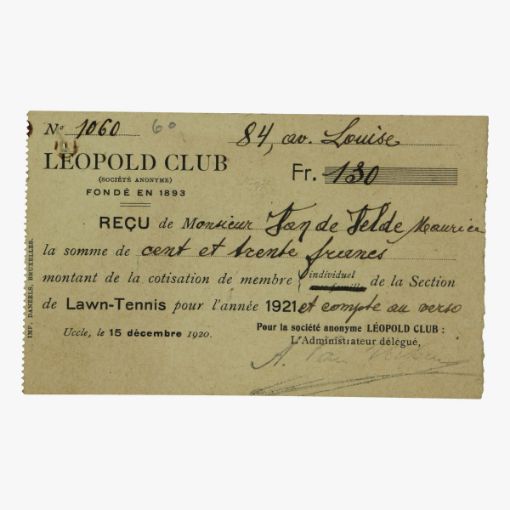 N° 1060 60
84, av. Louise
LÉOPOLD CLUB
(SOCIÉTÉ ANONYME)
FONDÉ EN 1893
Fr. 130
REÇU de Monsieur Van de Velde Maurice
la somme de cent et trente francs
montant de la cotisation de membre individuel de la Section
de Lawn-Tennis pour l'année 1921 et compte au verso
Uccle, le 15 décembre 1920.
Pour la société anonyme LÉOPOLD CLUB :
L'Administrateur délégué,
A. Van
IMP. DANEELS, BRUXELLES.